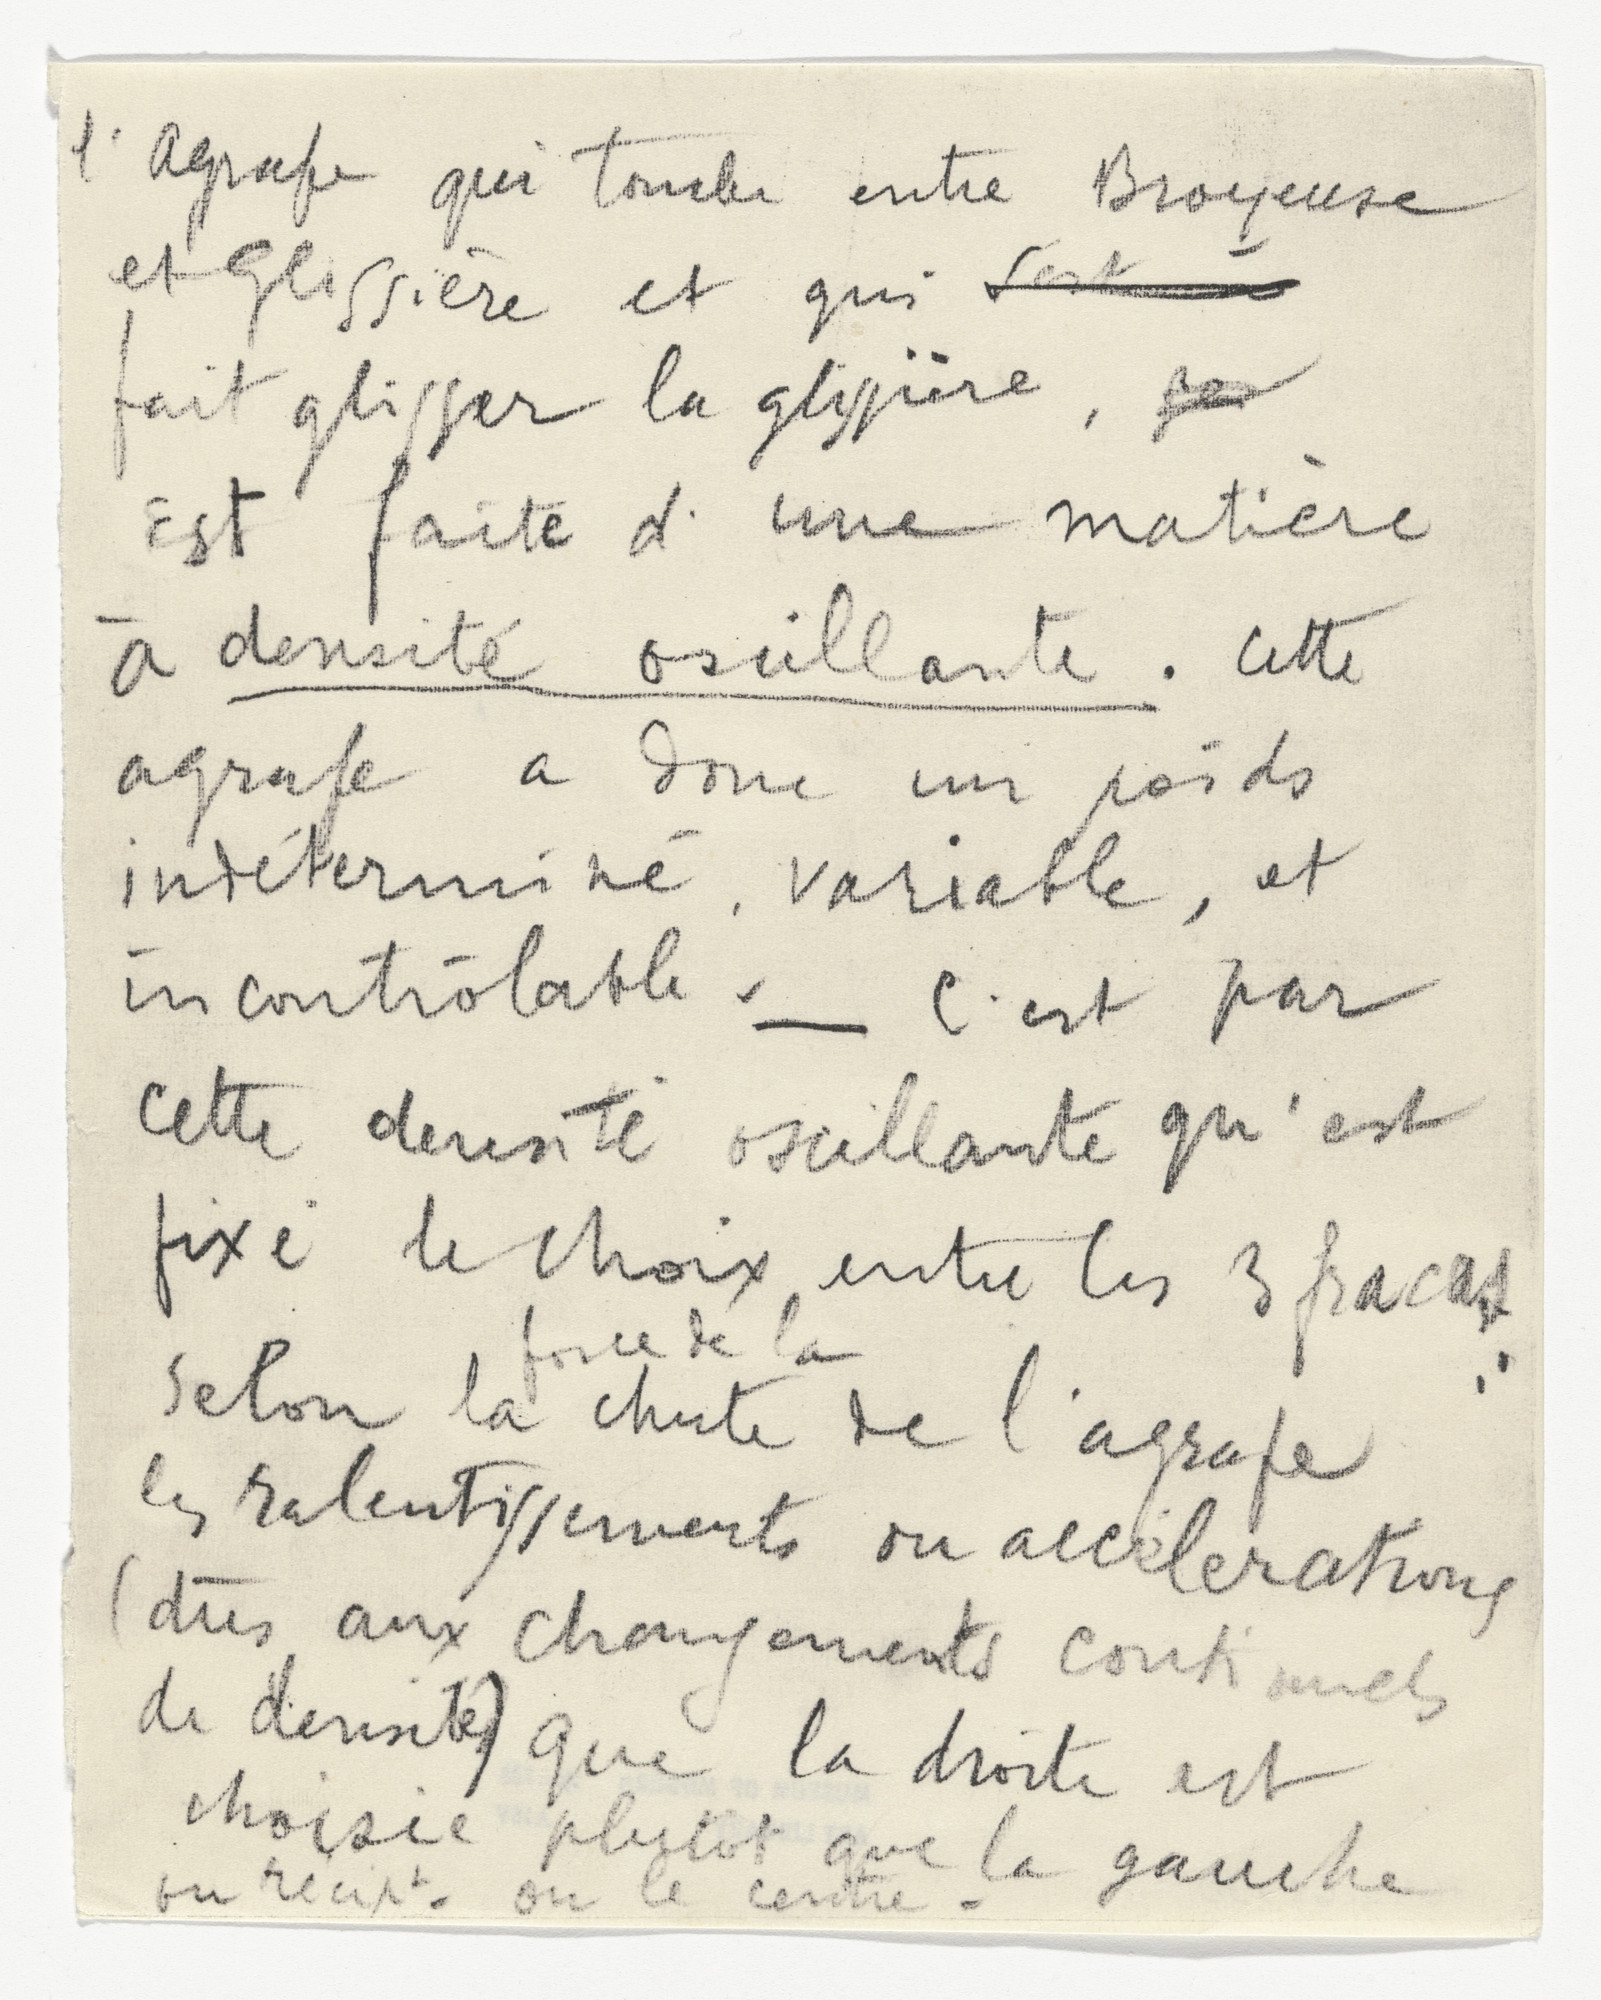 l'Agrafe qui tombe entre Broyeuse
et Glissière et qui s'est
fait glisser la glissière,
Est faite d'une matière
à densité oscillante. Cette
agrafe a donc un poids
indéterminé, variable, et
incontrôlable. — C'est par
cette densité oscillante qu'est
fixé le choix entre les 3 fracas
force de la
selon la chute de l'agrafe
les ralentissements ou accélerations
(dûes aux changements continuels
de densité) que la droite est
choisie plutôt que la gauche
ou récipt. ou le centre.